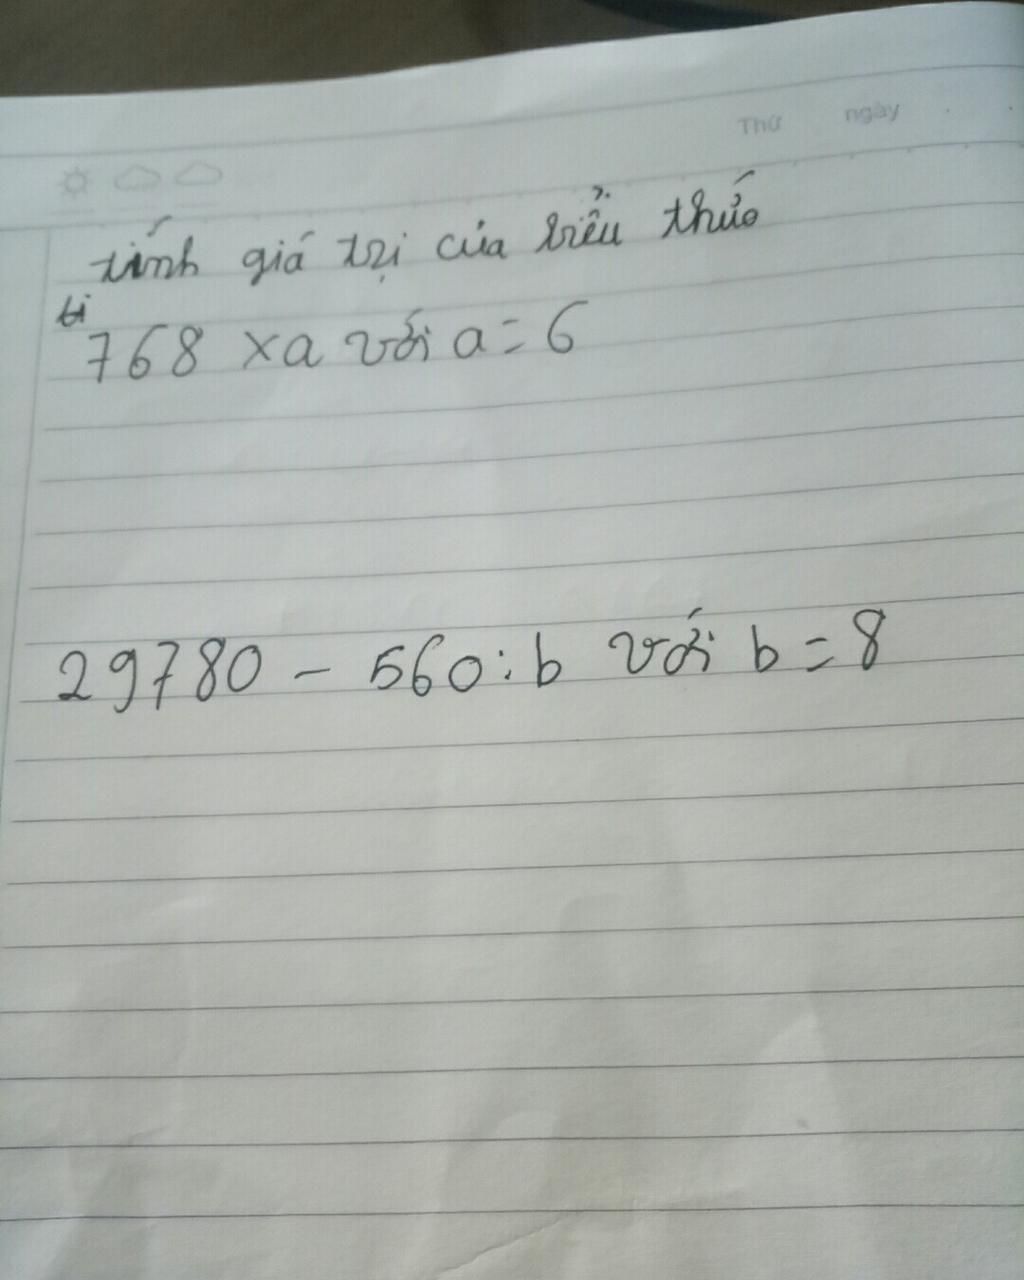 Thứ ngày
tính giá trị của biểu thức
768 x a với a = 6
29780 - 560 : b với b = 8